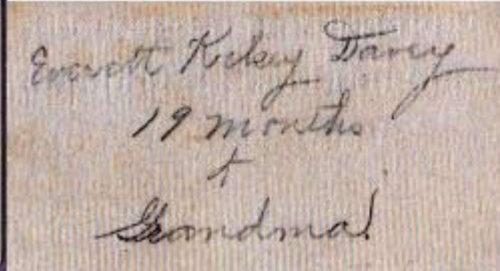 Everett Kelsey Davey
19 months
+
Grandma!